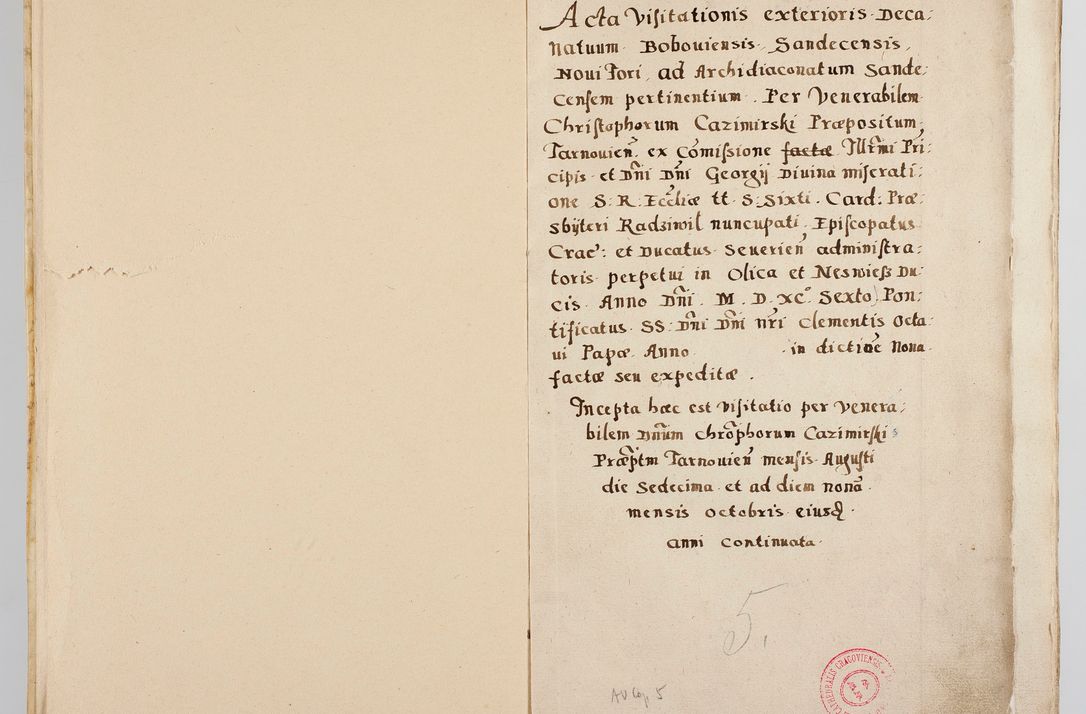 Acta Visitationis exterioris Deca:
natuum Bobouiensis, Sandecensis,
Noui Fori, ad Archidiaconatum Sande:
censem pertinentium. Per Venerabilem
Christophorum Cazimirski Præpositum
Tarnouien̄. ex Com̄issione factæ Illr̄mi Pri:
cipis et Dn̄i Dn̄i Georgij Diuina miserati:
one S: R: Eccl̄iæ tt S: Sixti. Card: Præ:
sbyteri Radziwil nuncupati, Episcopatus
Crac: et Ducatus Seuerien̄ administra:
toris perpetui in Olica et Neswieß Du:
cis. Anno Dn̄i. M. D. XC. Sexto, Pon:
tificatus SS: Dn̄i Dn̄i nr̄i Clementis Octa:
ui Papæ Anno in dictioe Nona
factæ seu expeditæ.
Incepta hæc est Visitatio per Venera:
bilem Dn̄um Chrōphorum Cazimirski
Præptm Tarnouien̄ mensis Augusti
die Sedecima et ad diem nonā
mensis Octobris eiusq
anni Continuata
5.
AV Cap. 5
CATHEDRALIS CRACOVIENSIS